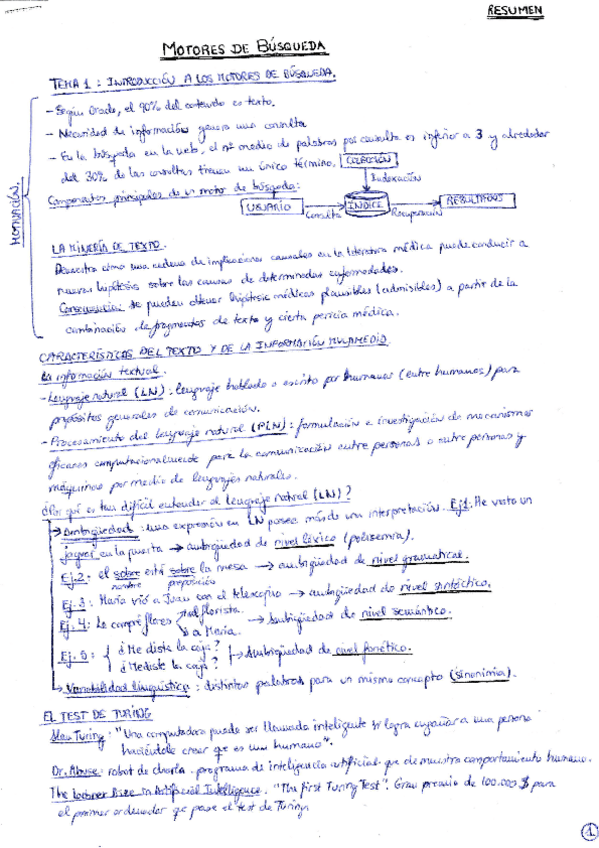 RESUMEN
MOTORES DE BÚSQUEDA
TEMA 1: INTRODUCCIÓN A LOS MOTORES DE BÚSQUEDA.
- Según Oracle, el 90% del contenido es texto.
- Necesidad de información genera una consulta
- En la búsqueda en la web, el nº medio de palabras por consulta es inferior a 3 y alrededor
del 30% de las consultas tienen un único término.
COLECCIÓN
Indexación
Componentes principales de un motor de búsqueda:
USUARIO
Consulta
ÍNDICE
Recuperación
RESULTADOS
MOTIVACIÓN
LA MINERÍA DE TEXTO.
Demuestra cómo una cadena de implicaciones causales en la literatura médica puede conducir a
nuevas hipótesis sobre las causas de determinadas enfermedades.
Consecuencia: se pueden obtener hipótesis médicas plausibles (admisibles) a partir de la
combinación de fragmentos de texto y cierta pericia médica.
CARACTERÍSTICAS DEL TEXTO Y DE LA INFORMACIÓN MULTIMEDIA
La información textual.
- Lenguaje natural (LN): lenguaje hablado o escrito por humanos (entre humanos) para
propósitos generales de comunicación.
- Procesamiento del lenguaje natural (PLN): formulación e investigación de mecanismos
eficaces computacionalmente para la comunicación entre personas o entre personas y
máquinas por medio de lenguajes naturales.
¿Por qué es tan difícil entender el lenguaje natural (LN)?
→ Ambigüedad: una expresión en LN posea más de una interpretación. Ej1: He visto un
jaguar en la puerta → ambigüedad de nivel léxico (polisemia).
Ej.2: el sobre está sobre la mesa → ambigüedad de nivel gramatical.
nombre preposición
Ej. 3: María vió a Juan con el telescopio → ambigüedad de nivel sintáctico.
Ej. 4: Le compré flores al florista.
a María. → Ambigüedad de nivel semántico.
Ej. 5: ¿Me diste la caja?
¿Mediste la caja? → Ambigüedad de nivel fonético.
→ Variabilidad lingüística: distintas palabras para un mismo concepto (sinonimia).
EL TEST DE TURING
Alan Turing: "Una computadora puede ser llamada inteligente si logra engañar a una persona
haciéndole creer que es un humano".
Dr. Abuse: robot de charla. programa de inteligencia artificial que demuestra comportamiento humano.
The Loebner Prize in Artificial Intelligence. "The first Turing Test". Gran premio de 100.000 $ para
el primer ordenador que pase el test de Turing.
1